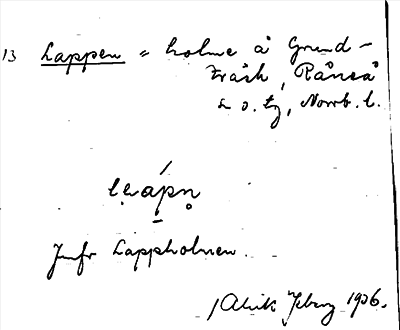 13 Lappen = holme å Grund-
träsk, Råneå
s o. tg, Norrb. l.
Jmfr Lappholmen.
Alrik Yberg 1936.